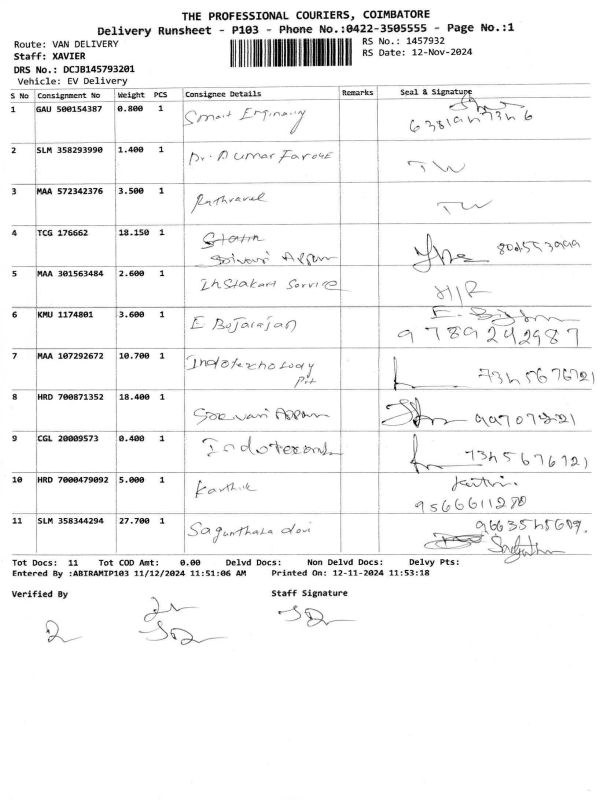 THE PROFESSIONAL COURIERS, COIMBATORE
Delivery Runsheet - P103 - Phone No.:0422-3505555 - Page No.:1
Route: VAN DELIVERY
RS No.: 1457932
Staff: XAVIER
RS Date: 12-Nov-2024
DRS No.: DCJB145793201
Vehicle: EV Delivery
S No Consignment No Weight PCS Consignee Details Remarks Seal & Signature
1 GAU 500154387 0.800 1 Smart
2 SLM 358293990 1.400 1 Dr. Farouk TW
3 MAA 572342376 3.500 1 Rathravel TW
4 TCG 176662 18.150 1 Srivari Appam
5 MAA 301563484 2.600 1 Instakart Service H/R
6 KMU 1174801 3.600 1 E Bojarajan 9789242987
7 MAA 107292672 10.700 1 Indotexhology Pvt
8 HRD 700871352 18.400 1 Sreevari Appam
9 CGL 20009573 0.400 1
10 HRD 7000479092 5.000 1 Karthik
11 SLM 358344294 27.700 1 Sagunthala devi
Tot Docs: 11 Tot COD Amt: 0.00 Delvd Docs: Non Delvd Docs: Delvy Pts:
Entered By :ABIRAMIP103 11/12/2024 11:51:06 AM Printed On: 12-11-2024 11:53:18
Verified By Staff Signature